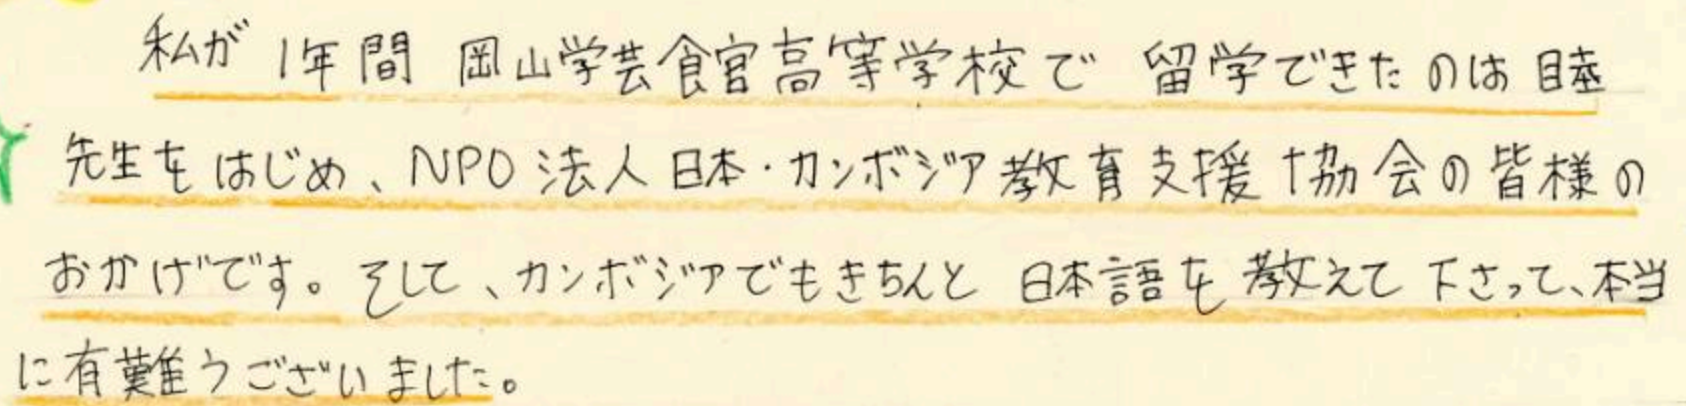 私が1年間 岡山学芸館高等学校で 留学できたのは 睦
先生をはじめ、NPO法人日本・カンボジア教育支援協会の皆様の
おかげです。そして、カンボジアでもきちんと 日本語を教えて下さって、本当
に有難うございました。